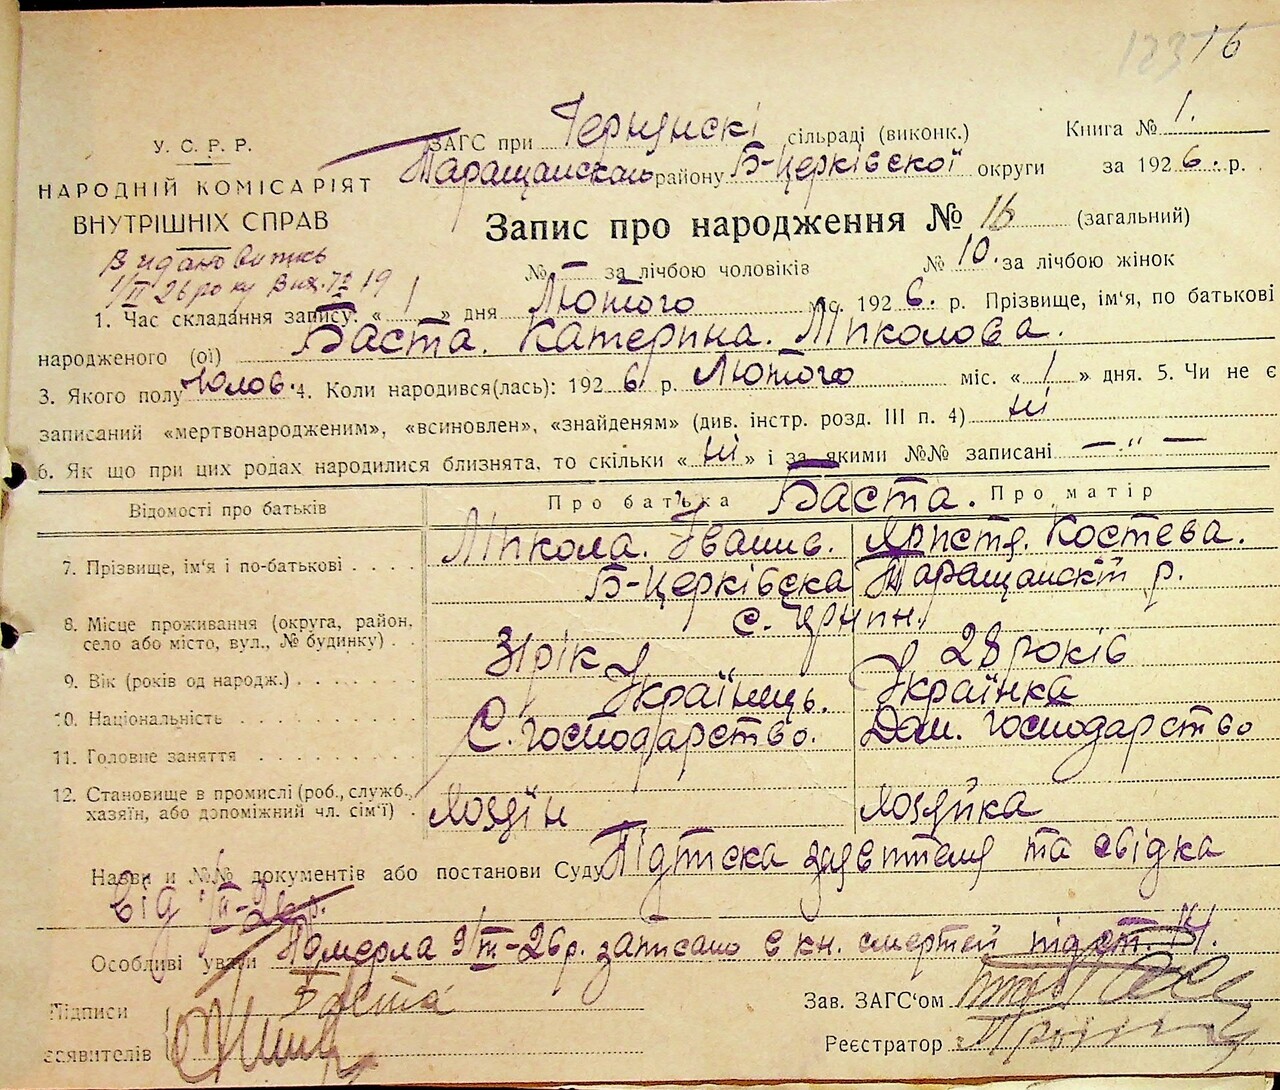 16
У. С. Р. Р.
НАРОДНІЙ КОМІСАРІЯТ
ВНУТРІШНІХ СПРАВ
ЗАГС при сільраді (виконк.) Книга № 1.
району Б-Церківської округи за 1926 р.
Запис про народження № 16 (загальний)
№ — за лічбою чоловіків № 10. за лічбою жінок
Видано витяг
1/II 26 року
1. Час складання запису: « 1 » дня Лютого міс. 1926. р. Прізвище, ім'я, по батькові
народженого (ої) Баста. Катерина. Миколова.
3. Якого полу 4. Коли народився(лась): 1926 р. Лютого міс. « 1 » дня. 5. Чи не є
записаний «мертвонародженим», «всиновлен», «знайденям» (див. інстр. розд. III п. 4) ні
6. Як що при цих родах народилися близнята, то скільки « ні » і за якими №№ записані — " —
Відомості про батьків Про батька Баста. Про матір
7. Прізвище, ім'я і по-батькові . . . . Микола. Іванив. Христя. Костева.
Б-Церківска Таращанскій р.
8. Місце проживання (округа, район,
село або місто, вул., № будинку) . с.
9. Вік (років од народж.) . . . . . . . . 28 років
10. Національність . . . . . . . . . . Українець. Українка
11. Головне заняття . . . . . . . . . С. господарство. Дом. господарство
12. Становище в промислі (роб., служб.,
хазяїн, або допоміжний чл. сім'ї) . хозяїн хозяйка
Назви и №№ документів або постанови Суду Підписка та свідка
від 1/II-26 р.
Особливі уваги Померла 9/III-26 р. записано в кн. смертей під ст. 14.
Підписи Баста Зав. ЗАГС'ом
заявителів Реєстратор